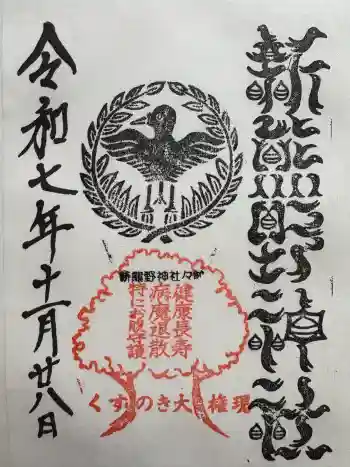 新熊野神社
令和七年十一月廿八日
新熊野神社々町
健康長寿
病魔退散
特にお腹守護
くすのき大権現